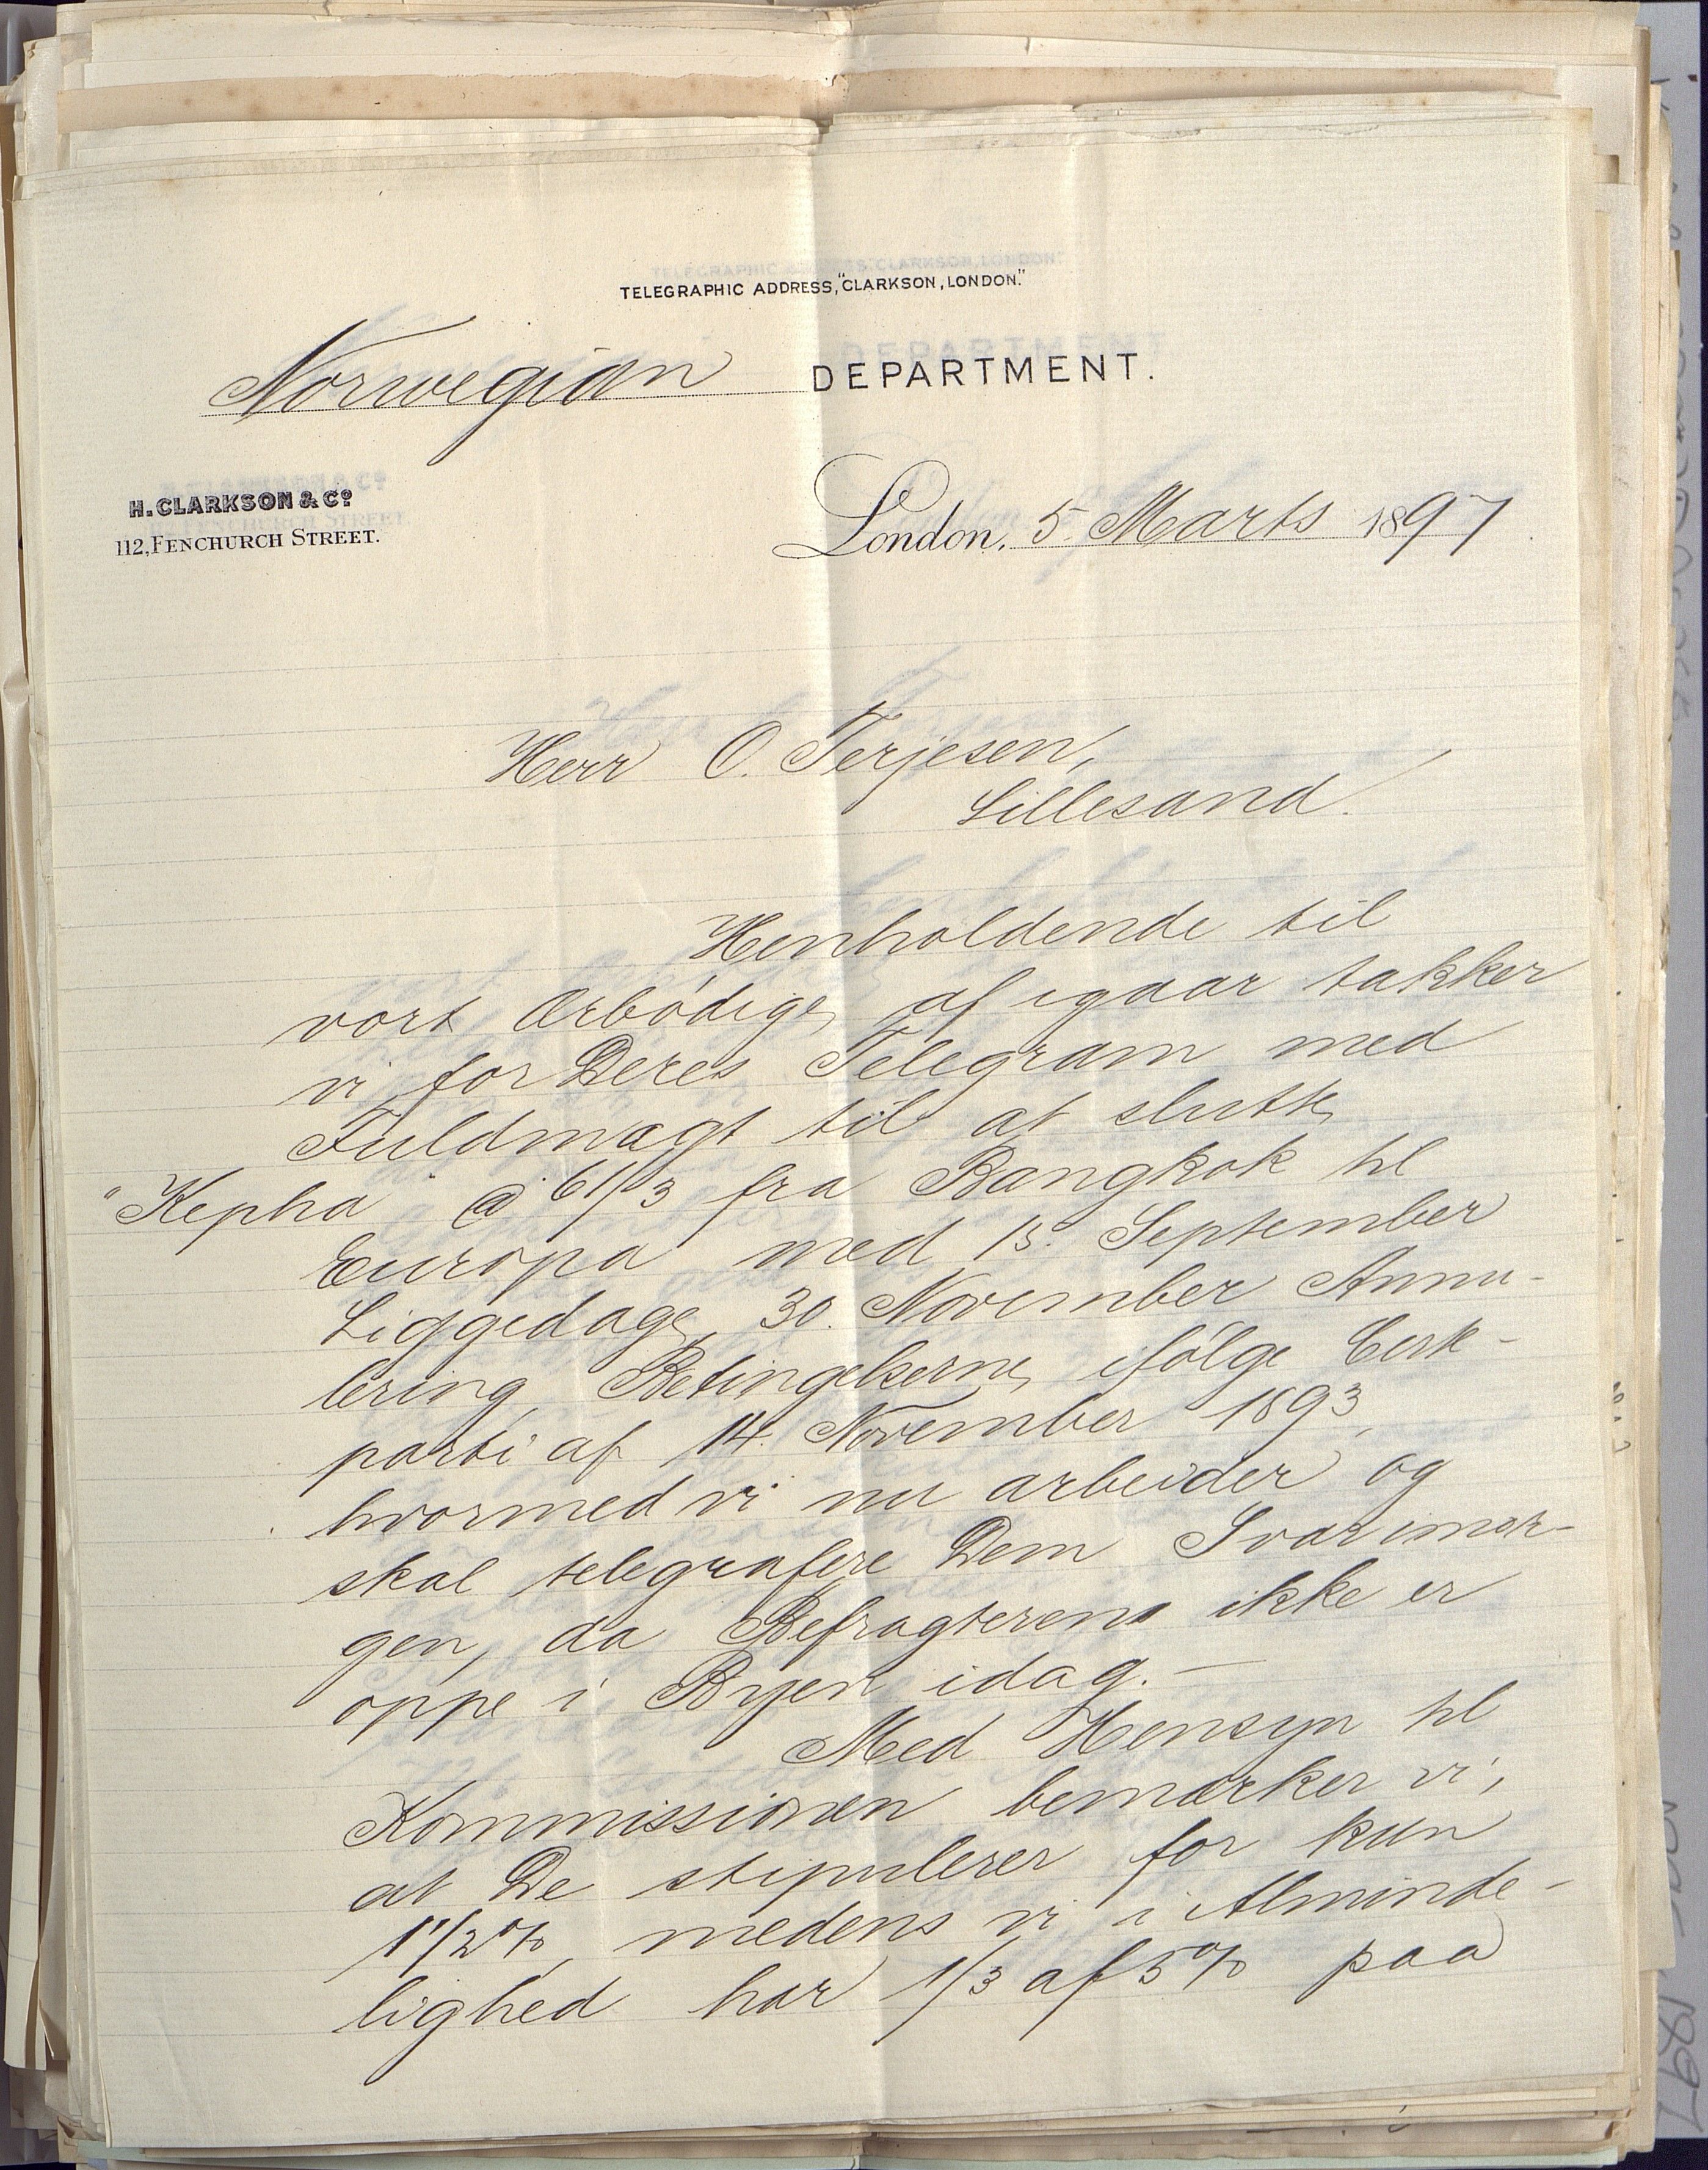 TELEGRAPHIC ADDRESS, "CLARKSON, LONDON."
Norwegian DEPARTMENT.
H. CLARKSON & Co
112, FENCHURCH STREET.
London, 5. Marts 1897
Herr O. Terjesen,
Lillesand.
Henholdende til
vort Ærbödige af igaar takker
vi for Deres Telegram med
Fuldmagt til at slutte
"Kepha" @ 61/3 fra Bangkok til
Europa med 15. September
Liggedage, 30. November Annu-
lering, Betingelserne ifölge Cert-
parti af 14. November 1893,
hvormed vi nu arbeider og
skal telegrafere Dem Svar imor-
gen, da Befragterene ikke er
oppe i Byen idag. —
Med Hensyn til
Kommissionen bemærker vi,
at De stipulerer for kun
1 1/2 %, medens vi i Alminde-
lighed har 1/3 af 5 % paa